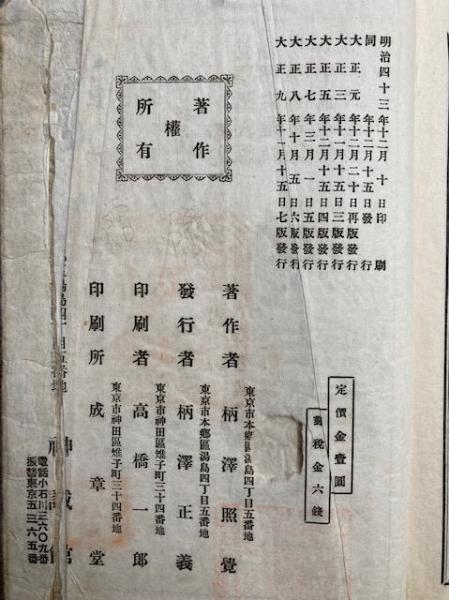 明治四十三年十二月十日印刷
同年十二月十五日發行
大正元年十二月二十日再版發行
大正三年十一月十五日三版發行
大正五年十二月十五日四版發行
大正七年三月一日五版發行
大正八年十月五日六版發行
大正九年十一月十五日七版發行
定價金壹圓
郵稅金六錢
著作權所有
東京市本鄉區湯島四丁目五番地
著作者 柄澤照覺
東京市本鄉區湯島四丁目五番地
發行者 柄澤正義
東京市神田區雉子町三十四番地
印刷者 高橋一郎
東京市神田區雉子町三十四番地
印刷所 成章堂
島四丁目五番地
神誠館
電話小石川三六〇九番
振替東京五三六五番